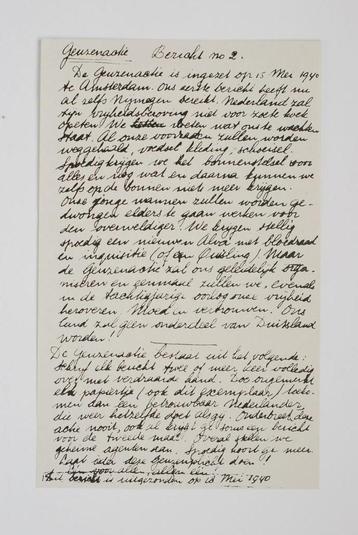 Geuzenactie Bericht no 2.
De Geuzenactie is ingezet op 15 Mei 1940
te Amsterdam. Ons eerste bericht heeft nu
al zelfs Nijmegen bereikt. Nederland zal
zijn vrijheidsberoving niet voor zoete koek
opeten. We weten wat ons te wachten
staat. Al onze voorraden zullen worden
weggehaald, voedsel kleding, schoeisel.
Spoedig krijgen we het bonnenstelsel voor
alles en nog wat en daarna kunnen we
zelfs op de bonnen niets meer krijgen.
Onze jonge mannen zullen worden ge-
dwongen elders te gaan werken voor
den overweldiger. We krijgen stellig
spoedig een nieuwen Alva met bloedraad
en inquisitie (of een Quisling). Maar
de Geuzenactie zal ons geleidelijk orga-
niseren en eenmaal zullen we, evenals
in de tachtigjarige oorlog onze vrijheid
heroveren. Moed en vertrouwen. Ons
land zal geen onderdeel van Duitsland
worden!
De Geuzenactie bestaat uit het volgende:
schrijf elk bericht twee of meer keer volledig
over met verdraaide hand. Doe ongemerkt
elk papiertje (ook dit exemplaar) toeko-
men aan een betrouwbaar Nederlander
die weer hetzelfde doet alszy. Onderbreek deze
actie nooit, ook al krijgt ge soms een bericht
voor de tweede maal. Overal stellen we
geheime agenten aan. Spoedig hoort ge meer.
Laat ieder deze Geuzenplicht doen!
Een voor allen, allen een!
Dit bericht is uitgezonden op 18 Mei 1940